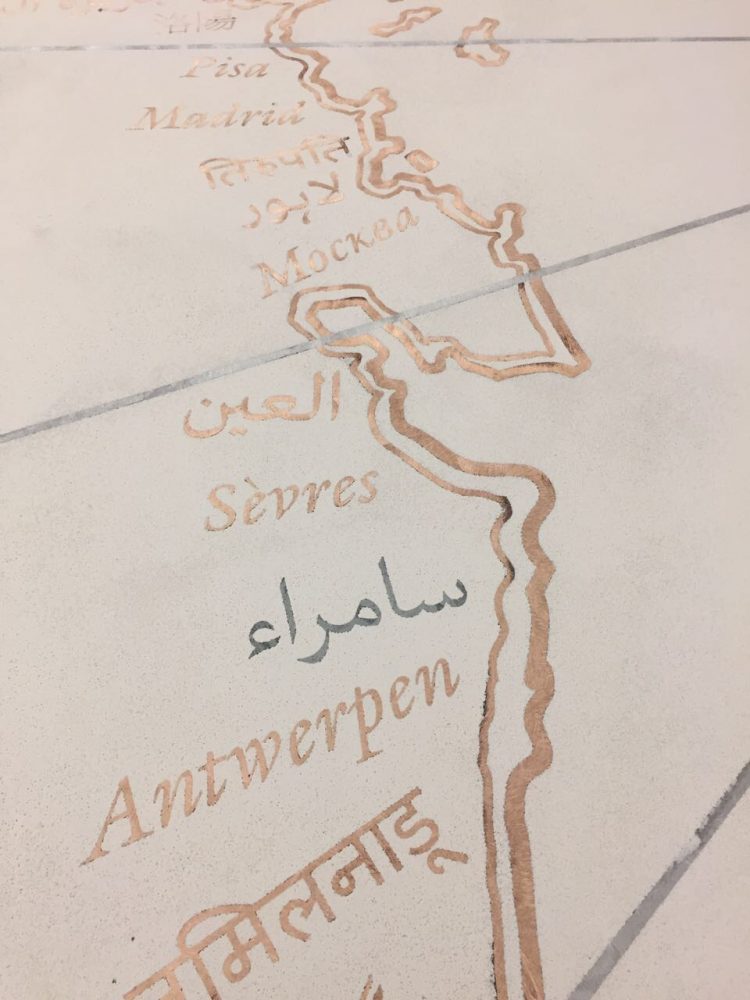 洛陽
Pisa
Madrid
तिरुपति
لاہور
Москва
العين
Sèvres
سامراء
Antwerpen
तमिलनाडू